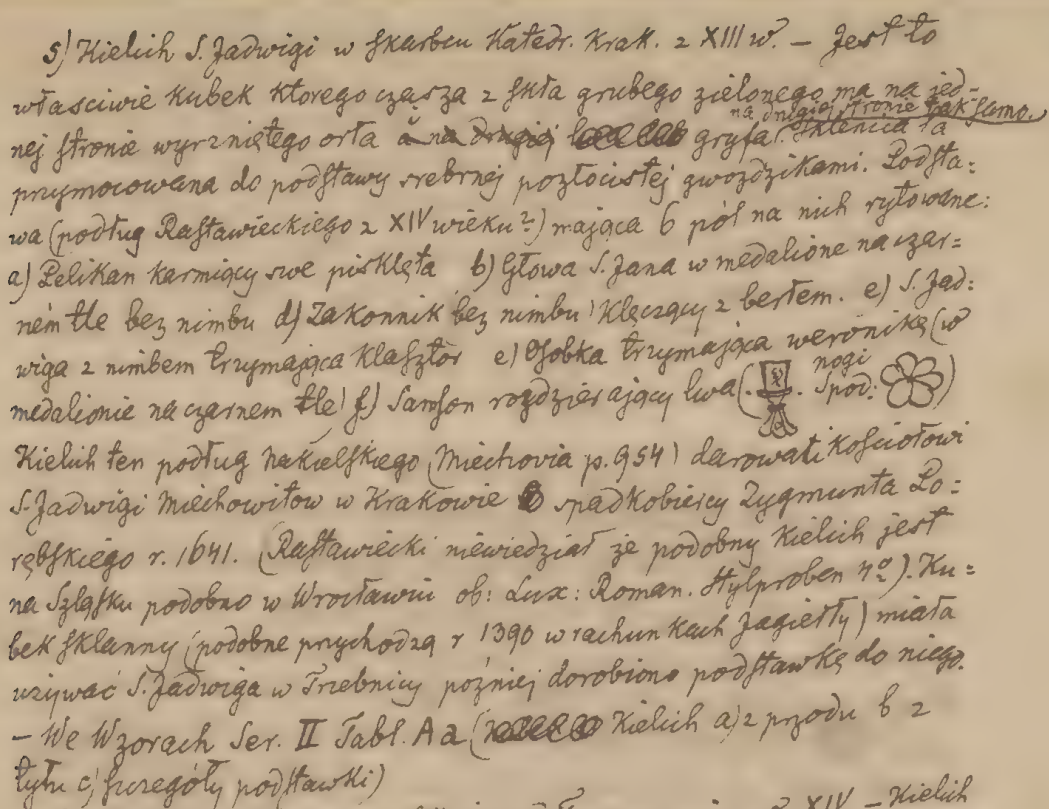 s) Kielich S. Jadwigi w skarbcu Katedr. Krak. z XIII w. – Jest to
właściwie kubek ktorego czasza z skła grubego zielonego ma na jed-
na drugiej stronie tak samo.
nej stronie wyrzniętego orła a na drugiej gryfa. Sklenica ta
przymocowana do podstawy srebrnej pozłocistej gwozdzikami. Podsta:
wa (podług Rastawieckiego z XIV wieku?) mająca 6 pól na nich rytowane:
a) Pelikan karmiący swe pisklęta b) Głowa S. Jana w medalione na czar=
nem tle bez nimbu d) Zakonnik bez nimbu klęczący z berłem. e) S. Jad:
wiga z nimbem trzymająca klasztor e) Osobka trzymająca weronikę (w
medalionie na czarnem tle) f) Samson rozdzierający lwa (. nogi
Spód: )
Kielich ten podług Nakielskiego (Miechovia p. 954) darowali kościołowi
S. Jadwigi Miechowitow w Krakowie spadkobiercy Zygmunta Po=
rębskiego r. 1641. (Rastawiecki niewiedział że podobny kielich jest
na Szląsku podobno w Wrocławiu ob: Lux: Roman. Stylproben 4º). Ku=
bek sklanny (podobne przychodzą r 1390 w rachunkach Jagiełły) miała
uzywać S. Jadwiga w Trzebnicy pozniej dorobiono podstawkę do niego.
– We Wzorach Ser. II Tabl. A a ( Kielich a) z przodu b z
tyłu c) szczegóły podstawki)
XIV – Kielich